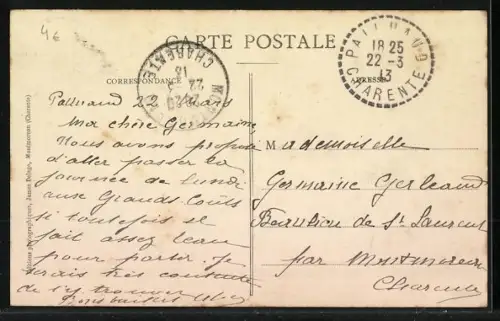 4€
CARTE POSTALE
CORRESPONDANCE
ADRESSE
PALLUAUD
18 25
22 - 3
13
CHARENTE
CHARENTE
22 - 3
13
Palluaud 22 Mars
Ma chère Germaine,
Nous avons projeté
d'aller passer la
journée de lundi
aux Grands Conts
si toutefois il
fait assez beau
pour partir. Je
serais très contente
de t'y trouver
Mademoiselle
Germaine Gerbeaud
Beaulieu de St Laurent
par Montmoreau
Charente